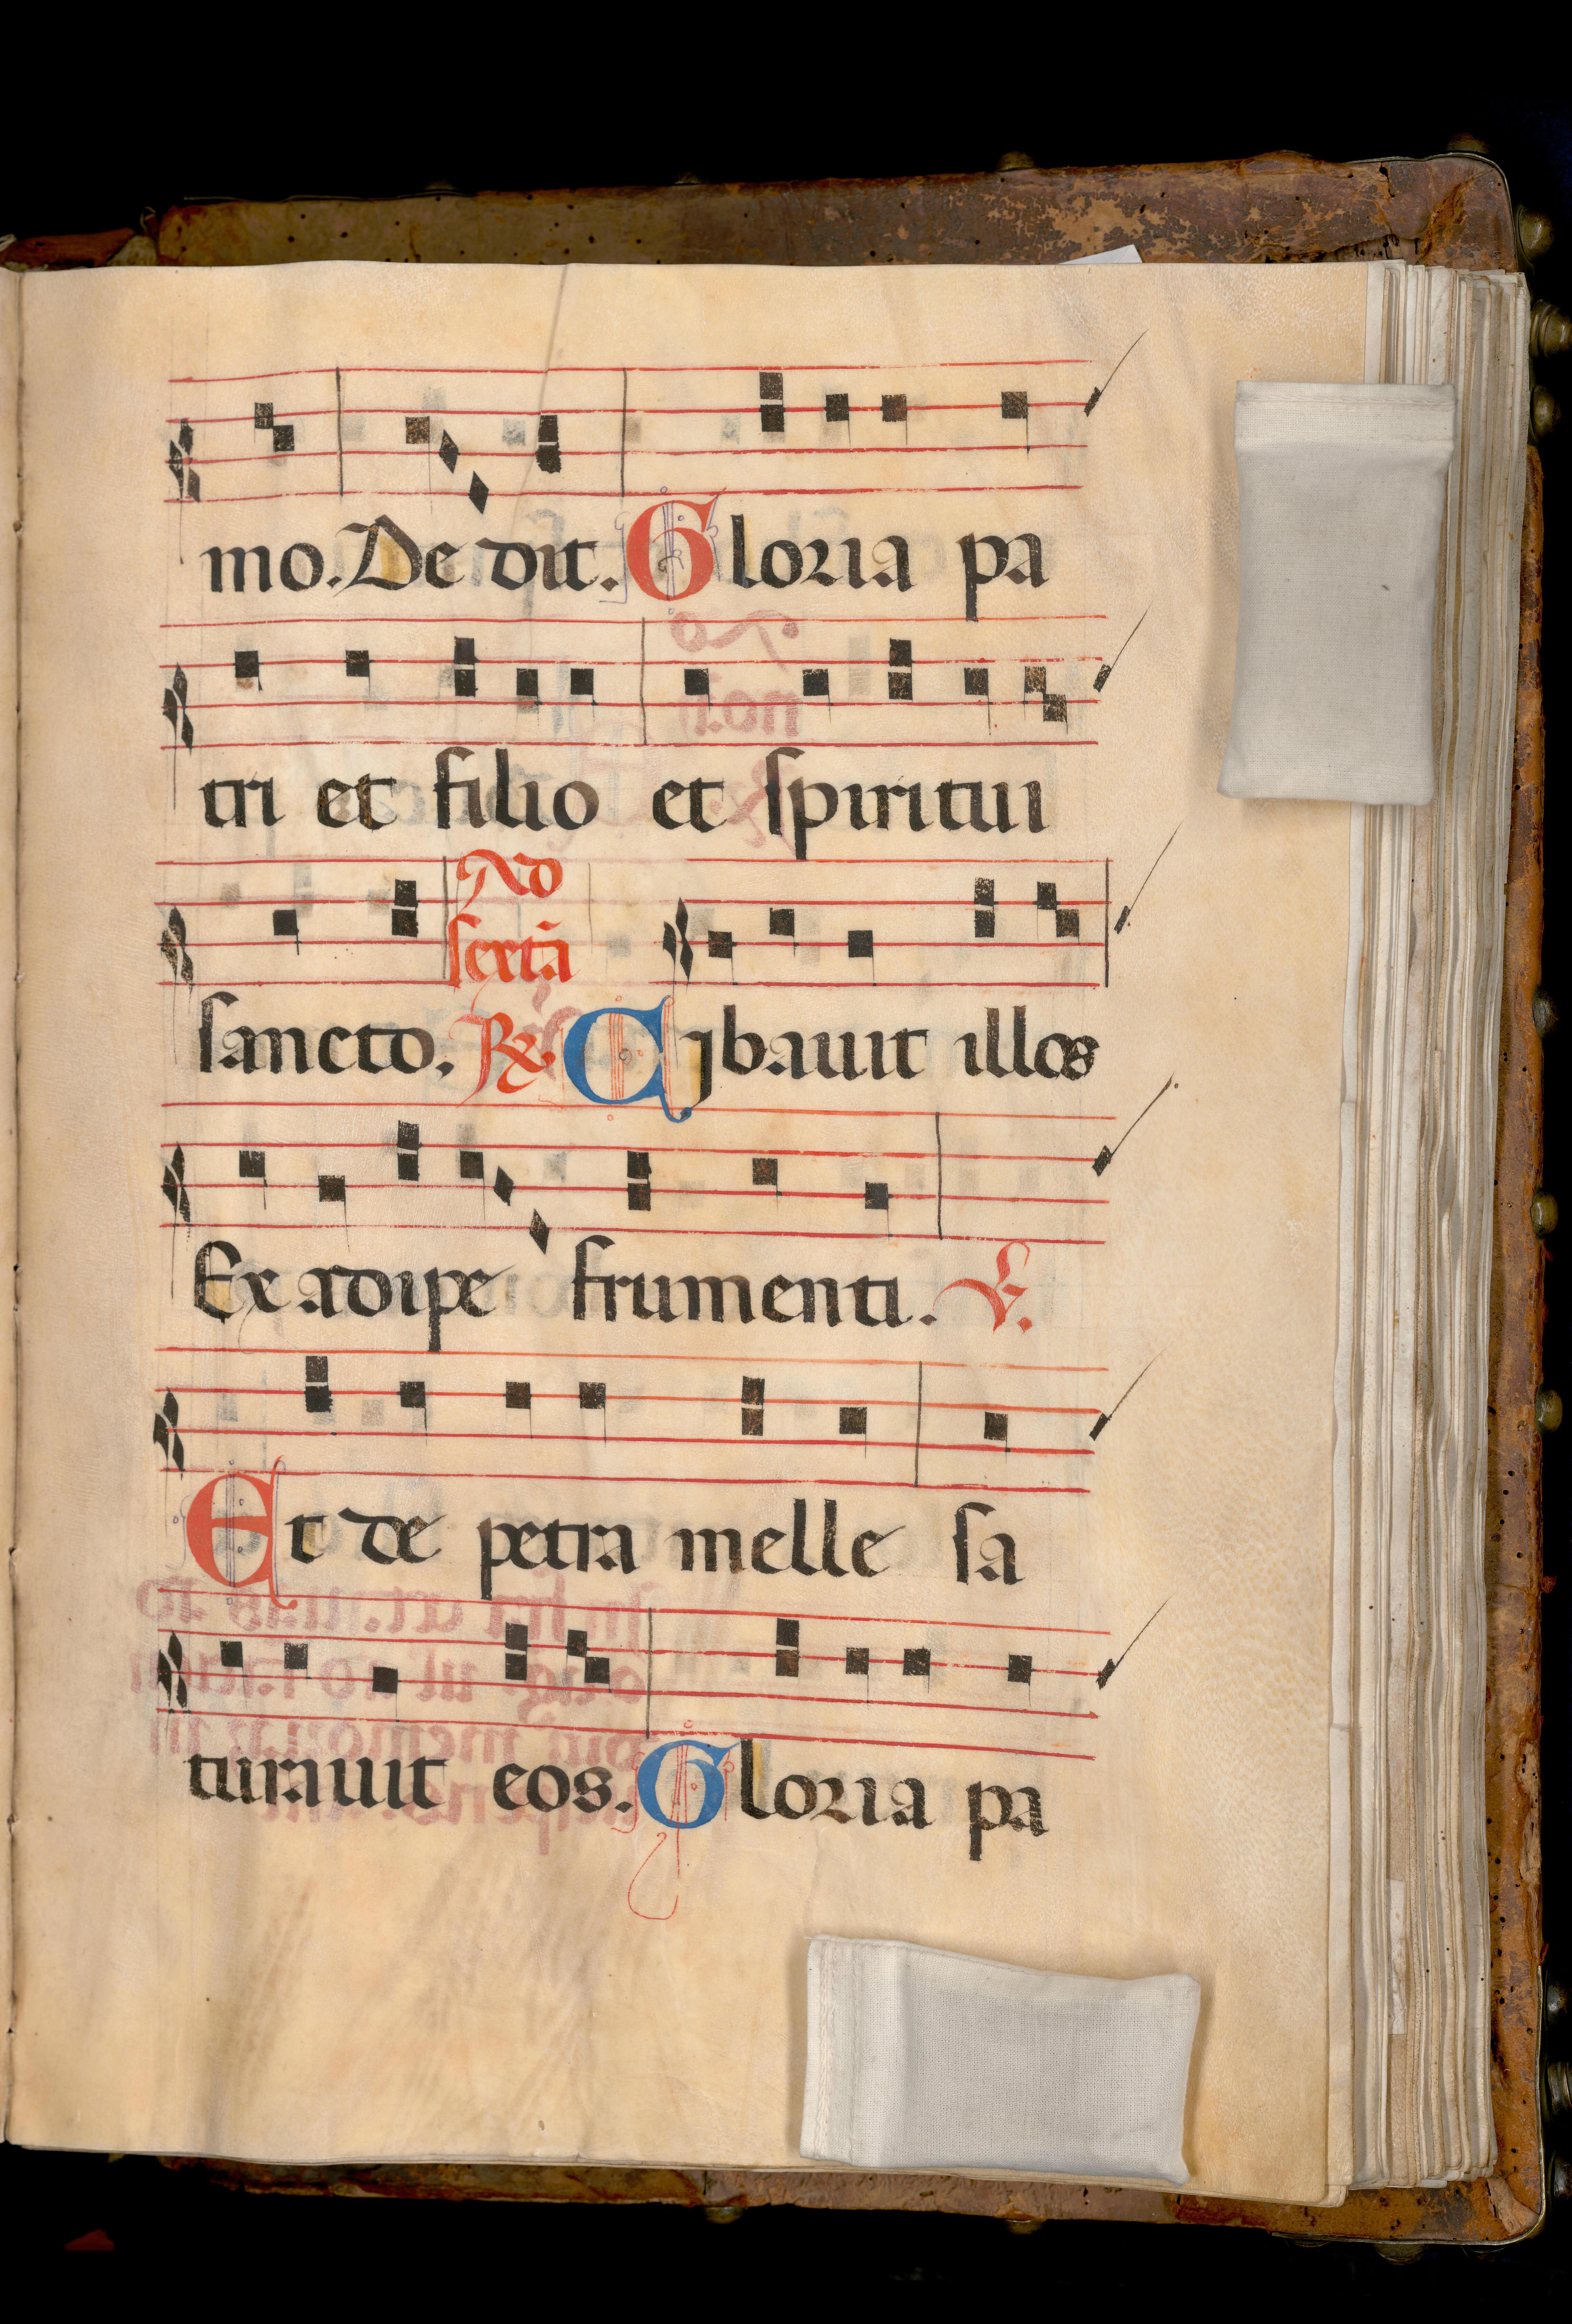 mo. De dit. Gloria pa
tri et filio et spiritui
Ad
sextã
sancto. ℟ Cjbauit illos
Ex adipe frumenti. ℣.
Et de petra melle sa
turauit eos. Gloria pa